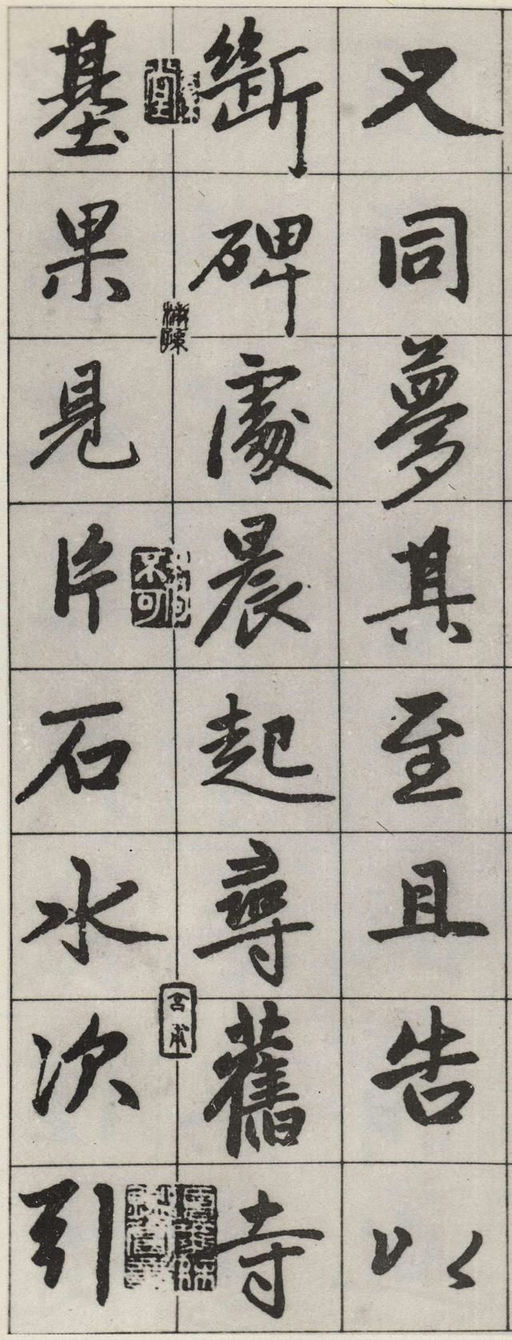 又同夢其至且告以
斷碑處晨起尋舊寺
基果見片石水次引